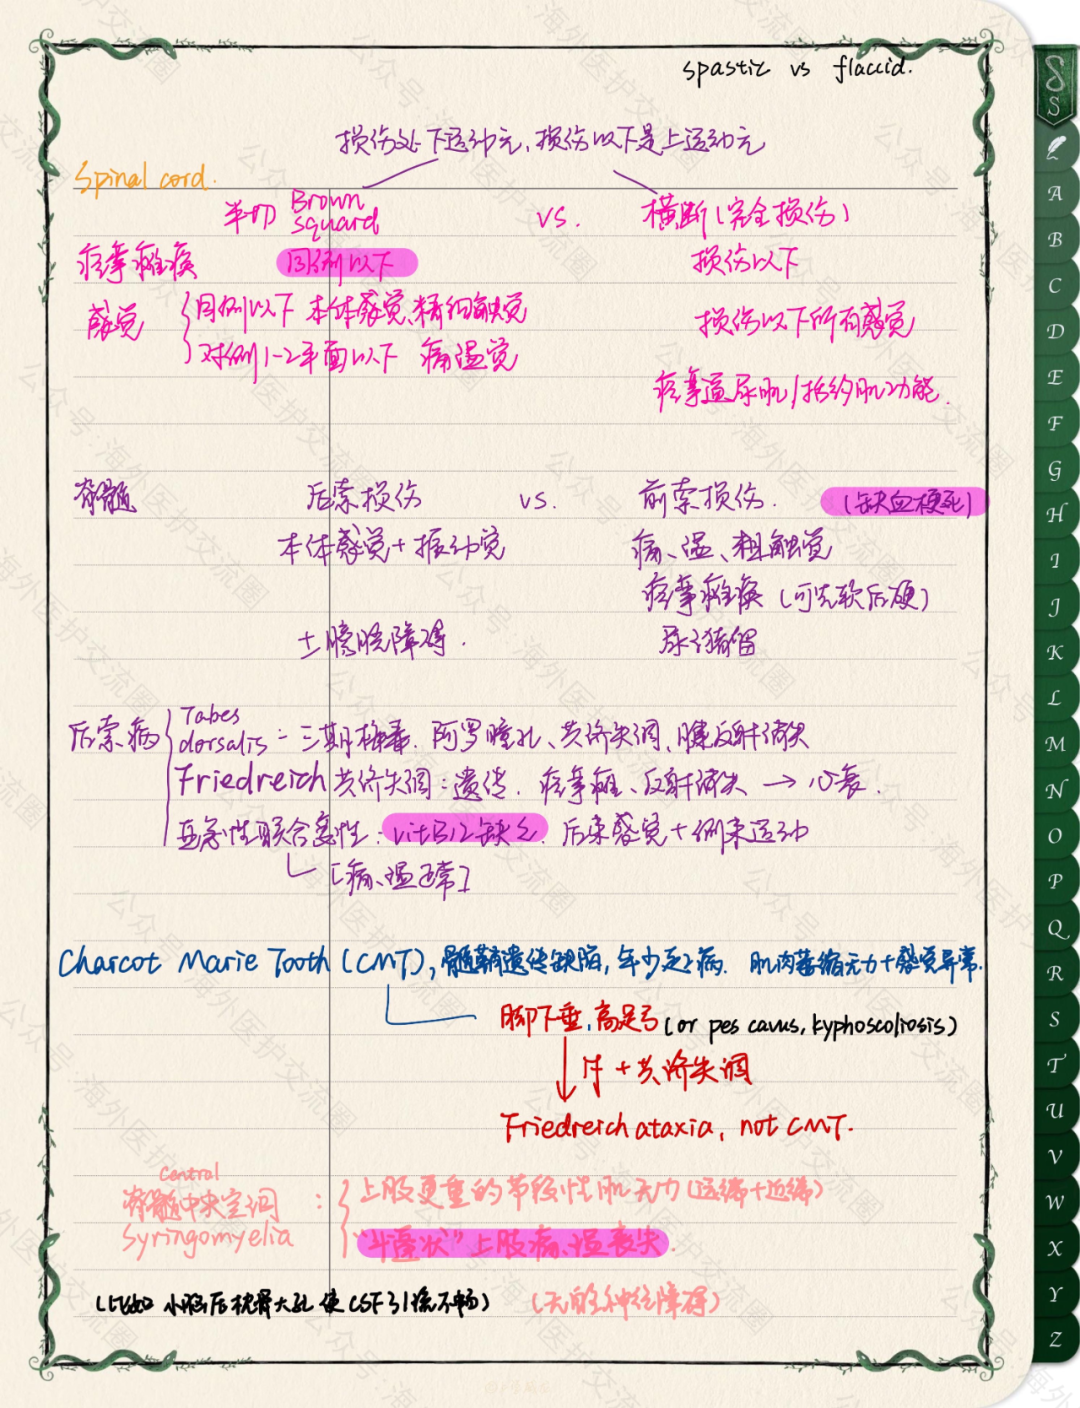 spastic vs flaccid.
损伤处下运动元，损伤以下是上运动元
Spinal cord.
半切 Brown squard vs. 横断（完全损伤）
痉挛瘫痪 同侧以下 损伤以下
感觉 同侧以下 本体感觉、精细触觉 损伤以下所有感觉
对侧1-2平面以下 痛温觉
痉挛逼尿肌/括约肌功能.
脊髓 后索损伤 vs. 前索损伤. （缺血梗死）
本体感觉+振动觉 痛、温、粗触觉
痉挛瘫痪（可先软后硬）
±膀胱障碍. 尿潴留
后索病 Tabes dorsalis = 三期梅毒. 阿罗瞳孔、共济失调、腱反射消失
Friedreich共济失调：遗传. 痉挛瘫、反射消失 → 心衰.
亚急性联合变性：vitB12缺乏. 后索感觉+侧索运动
[痛、温正常]
Charcot Marie Tooth (CMT), 髓鞘遗传缺陷, 年少起病. 肌肉萎缩无力+感觉异常.
脚下垂, 高足弓 (or pes cavus, kyphoscoliosis)
↓ 才+共济失调
Friedreich ataxia, not CMT.
central
脊髓中央空洞 Syringomyelia : 上肢更重的节段性肌无力（远端+近端）
"斗篷状"上肢痛、温丧失.
（比如 小脑后枕骨大孔使CSF引流不畅） （无脑神经障碍）